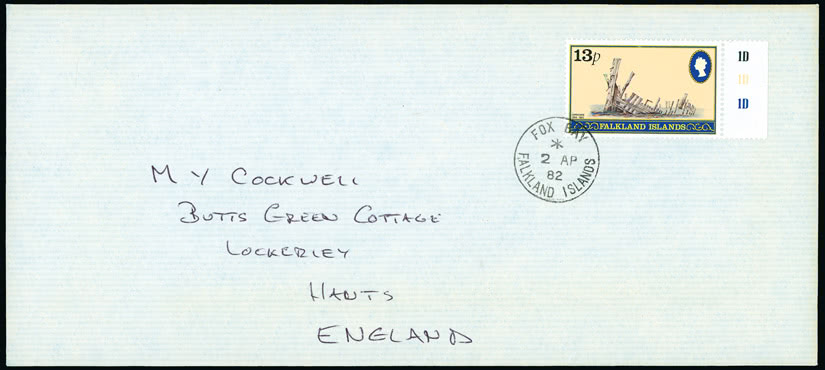 13p
1D
1D
1D
FALKLAND ISLANDS
FOX BAY
*
2 AP
82
FALKLAND ISLANDS
M Y COCKWELL
BUTTS GREEN COTTAGE
LOCKERLEY
HANTS
ENGLAND